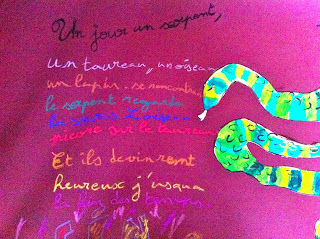 Un jour un serpent,
un taureau, un oiseau
un lapin. se rencontrent
le serpent regarda
la souris L'oiseau
picore sur le taureau
Et ils devinrent
heureux j'usqua
la fin des temps.